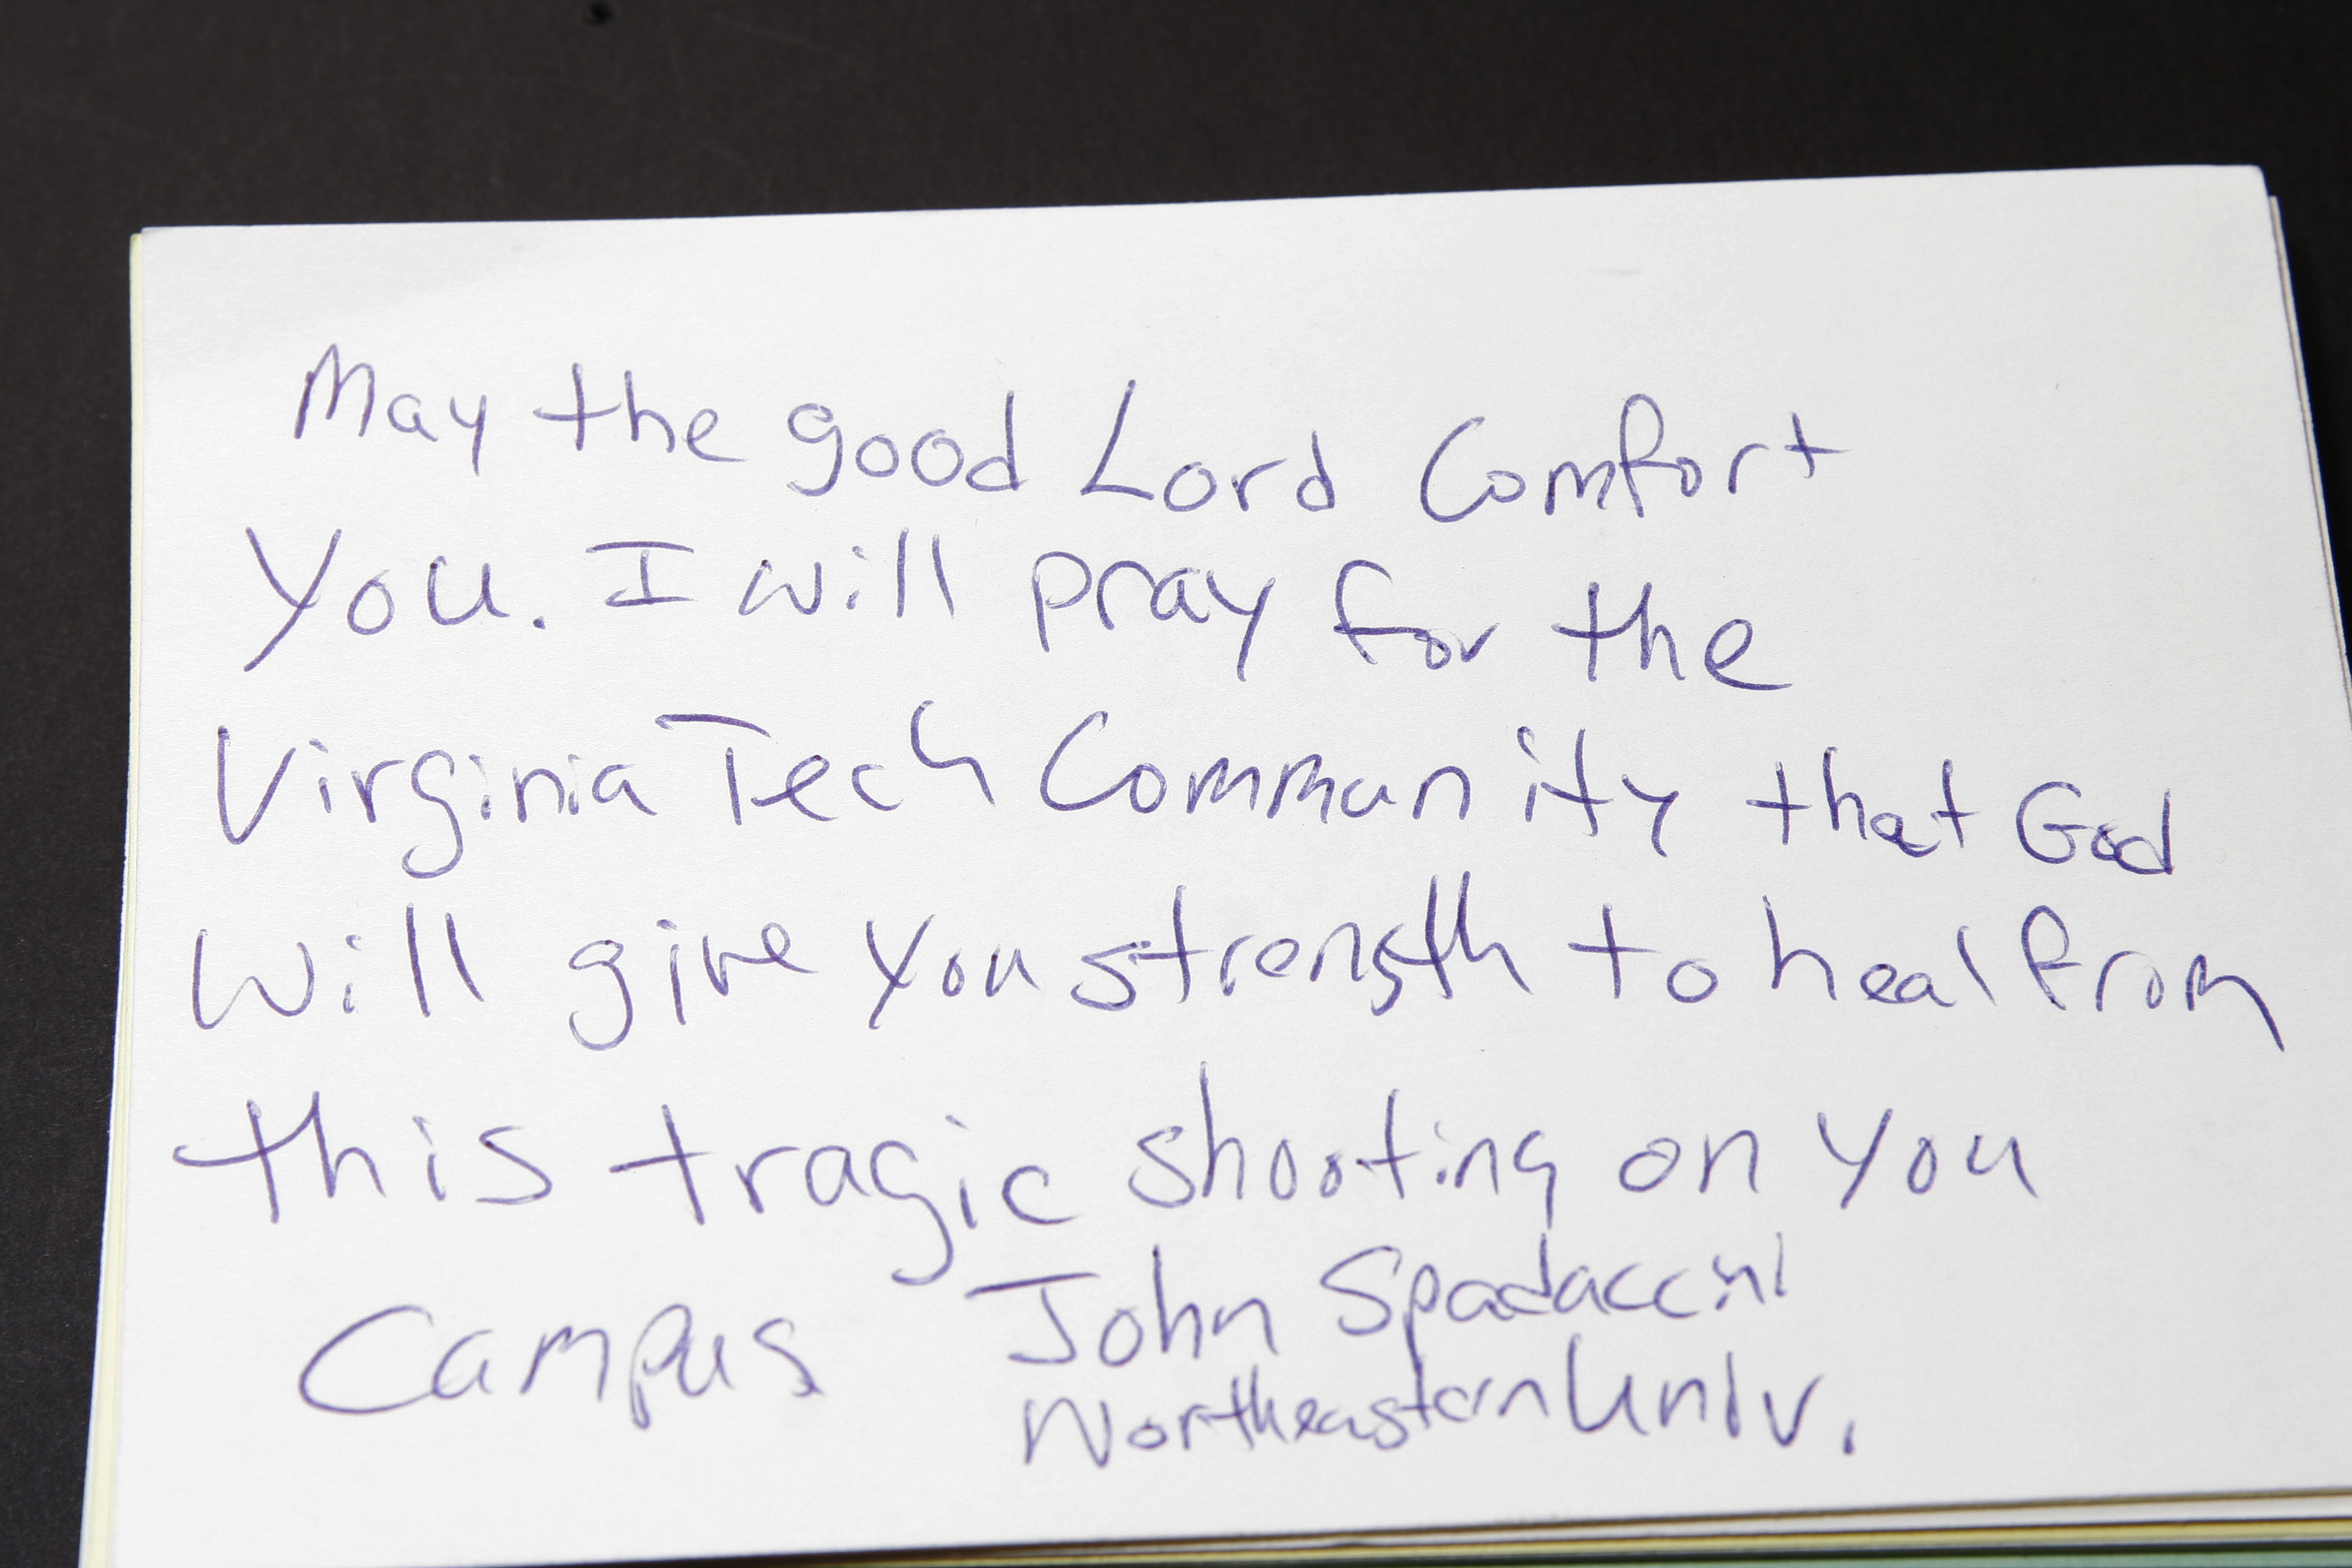 May the good Lord Comfort
You. I will pray for the
Virginia Tech Community that God
Will give you strength to heal from
this tragic shooting on you
Campus John Spadaccini
Northeastern Univ.